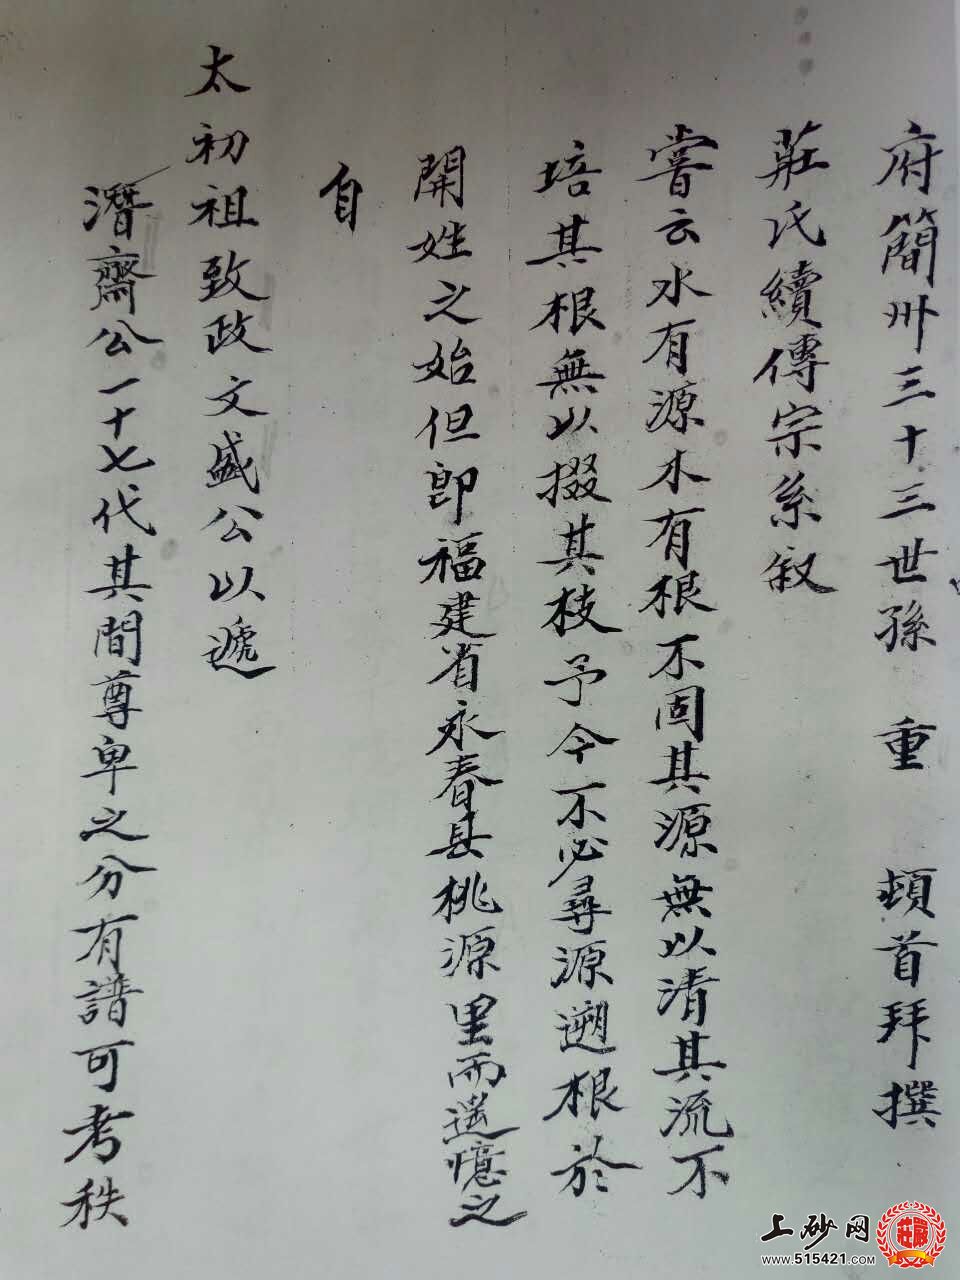 府簡州三十三世孫 重 頓首拜撰
莊氏續傳宗系叙
嘗云水有源木有根不固其源無以清其流不
培其根無以掇其枝予今不必尋源遡根於
開姓之始但即福建省永春县桃源里而遥憶之
自
太初祖致政文盛公以遞
潛齋公一十七代其間尊卑之分有譜可考秩
上砂网
www.515421.com